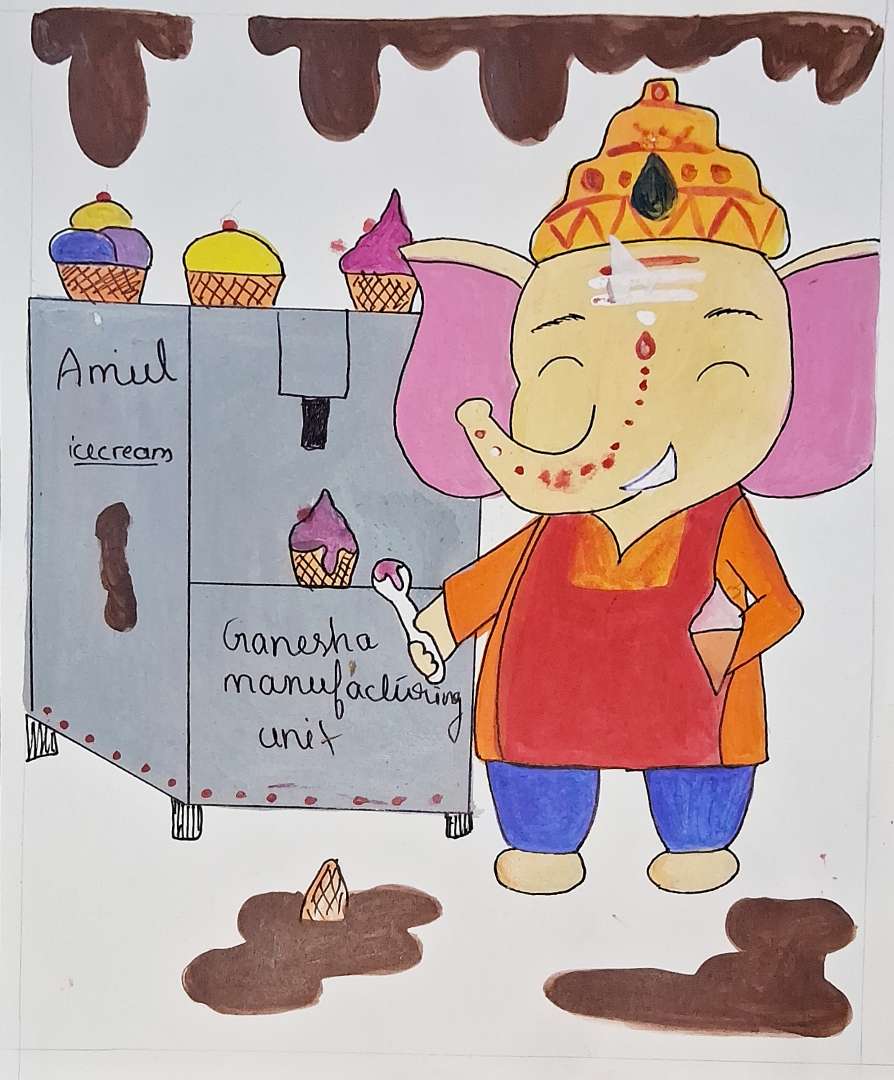 Amul
icecream
Ganesha
manufacturing
unit